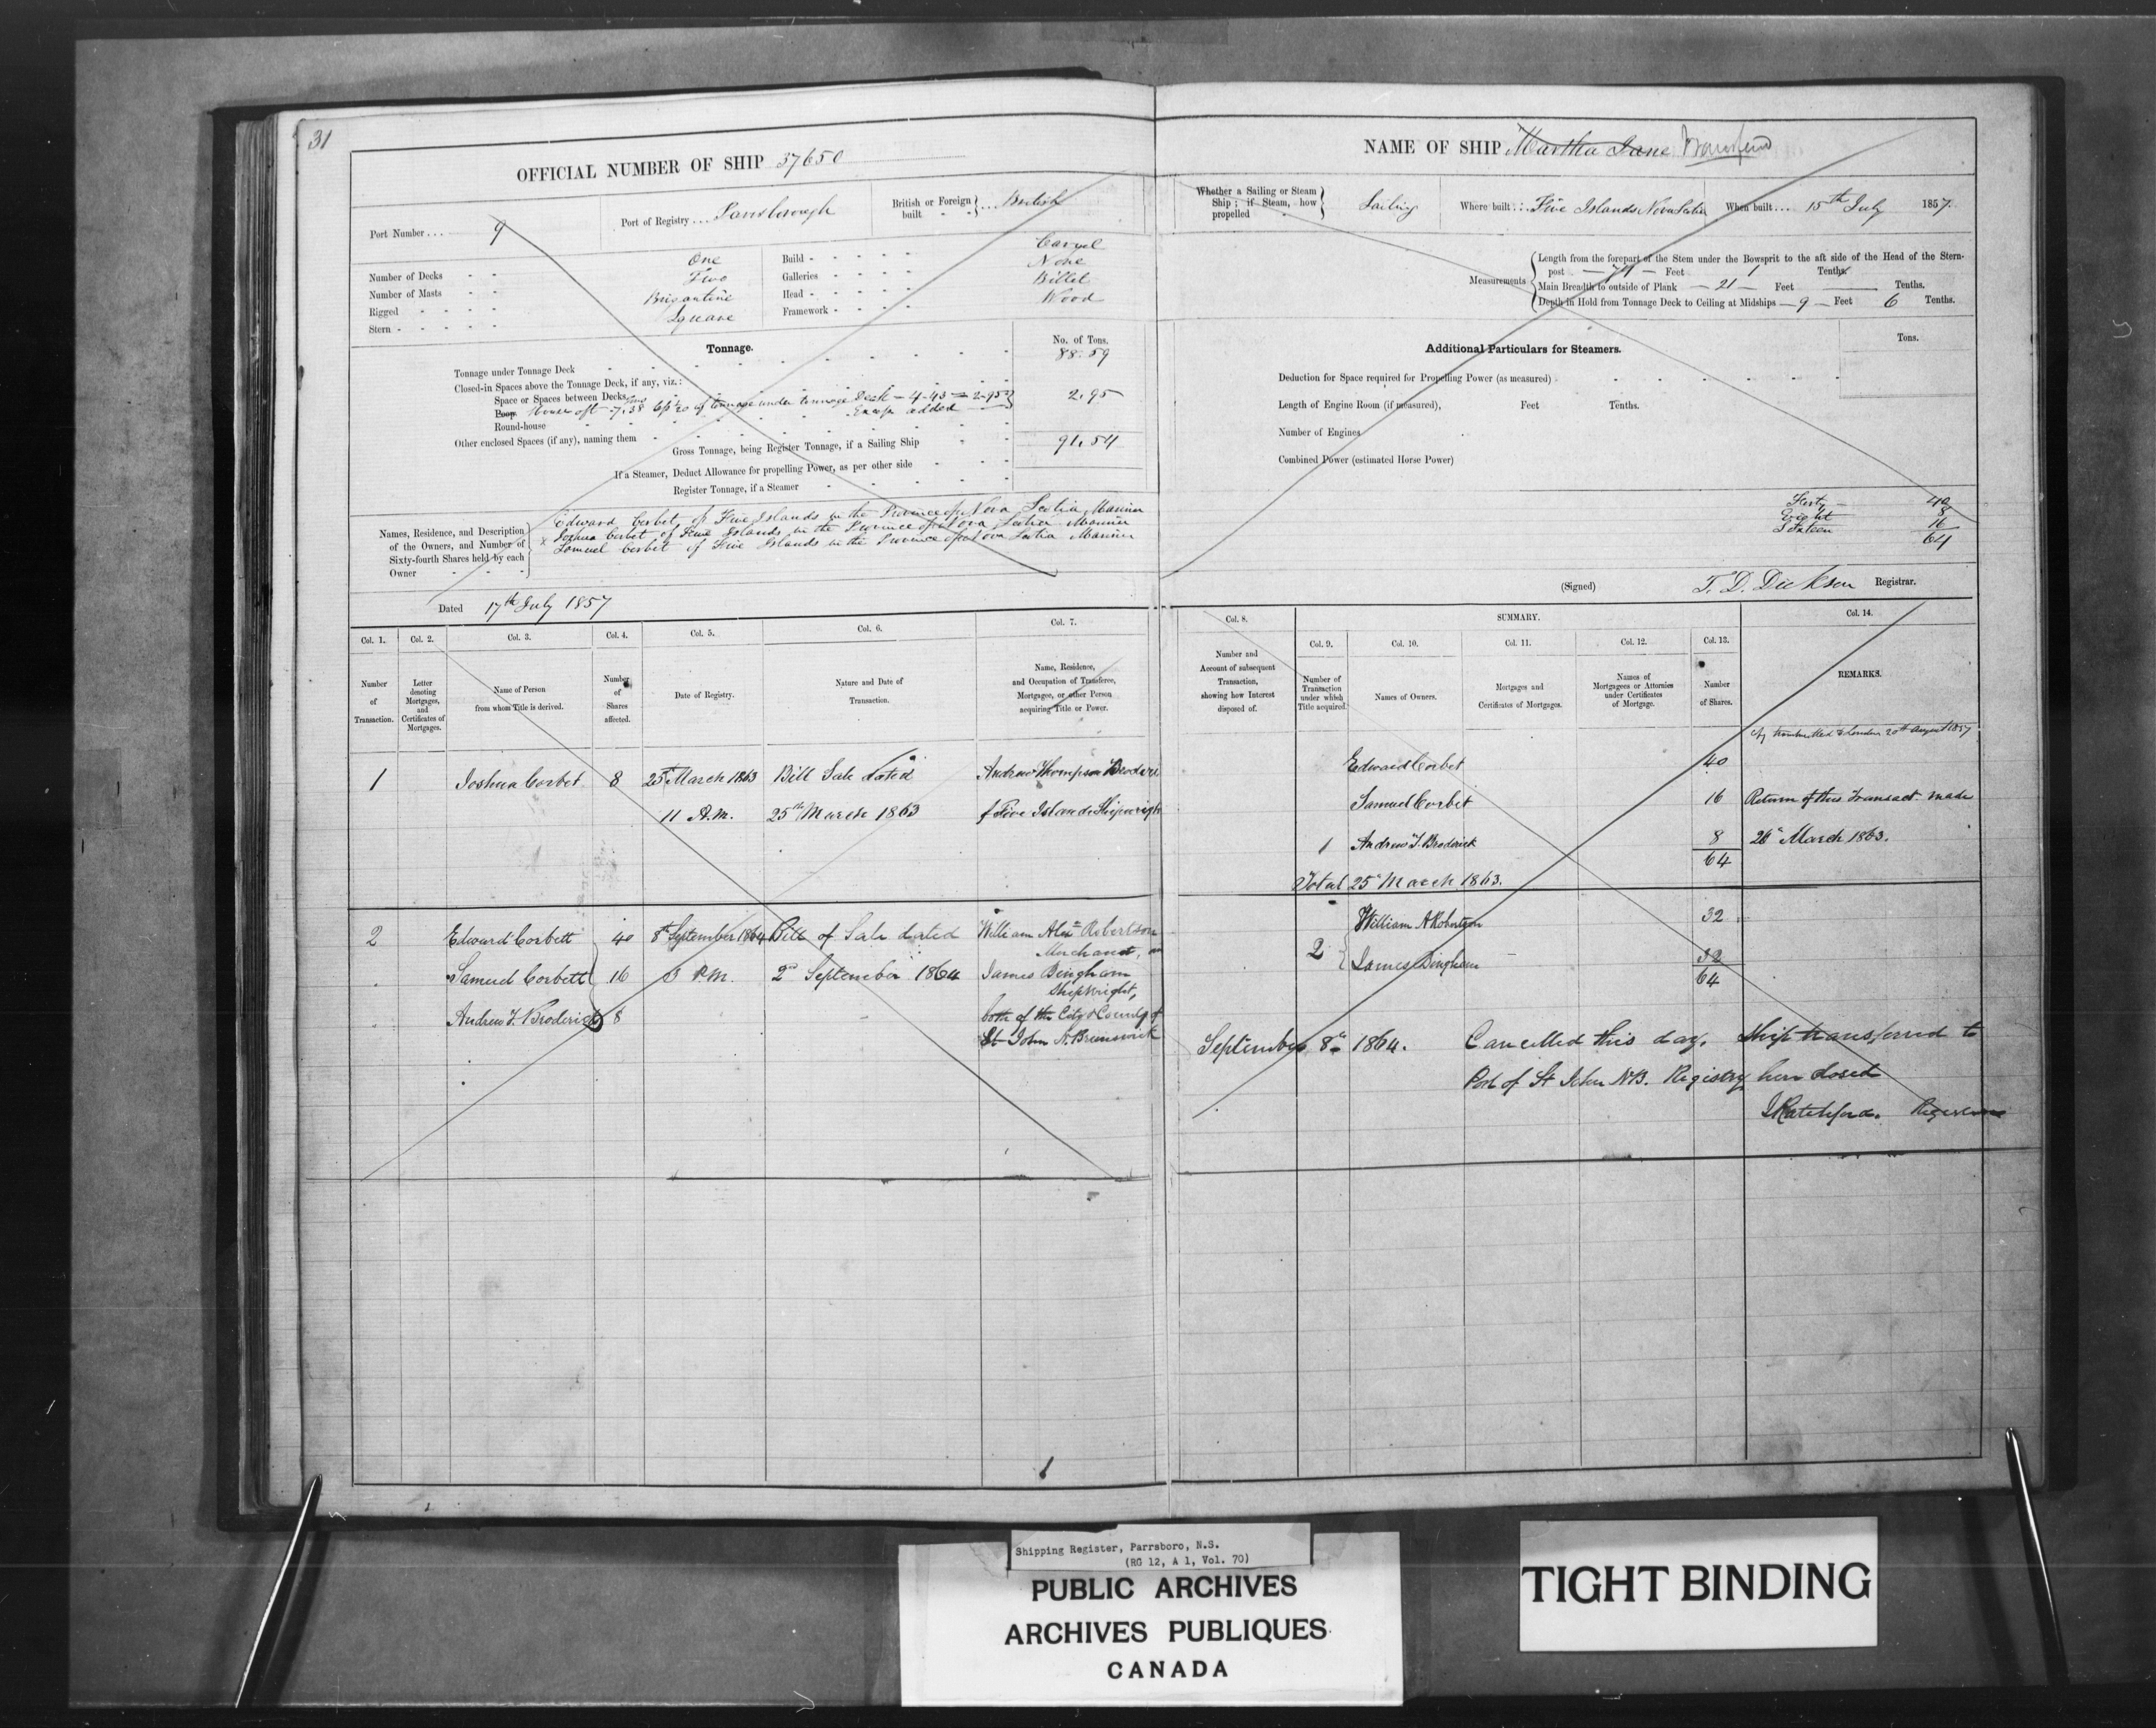 31
OFFICIAL NUMBER OF SHIP 37650
Port Number . . . 9
Port of Registry . . . Parrsborough
British or Foreign built - - } . . . British
Number of Decks - - One
Number of Masts - - Two
Rigged - - - - Brigantine
Stern - - - - - Square
Build - - - - - Carvel
Galleries - - - - None
Head - - - - - Billet
Framework - - - - Wood
Tonnage.
No. of Tons.
Tonnage under Tonnage Deck 88.59
Closed-in Spaces above the Tonnage Deck, if any, viz.:
Space or Spaces between Decks
Poop House aft 7.38 of tonnage under tonnage Deck - 4.43 = 2.95 } 2.95
Round-house Excess added
Other enclosed Spaces (if any), naming them
Gross Tonnage, being Register Tonnage, if a Sailing Ship 91.54
If a Steamer, Deduct Allowance for propelling Power, as per other side
Register Tonnage, if a Steamer
Names, Residence, and Description of the Owners, and Number of Sixty-fourth Shares held by each Owner
Edward Corbet of Five Islands in the Province of Nova Scotia Mariner
x Joshua Corbet of Five Islands in the Province of Nova Scotia Mariner
Samuel Corbet of Five Islands in the Province of Nova Scotia Mariner
Dated 17th July 1857
Col. 1. Col. 2. Col. 3. Col. 4. Col. 5. Col. 6. Col. 7.
Number of Transaction.
Letter denoting Mortgages, and Certificates of Mortgages.
Name of Person from whom Title is derived.
Number of Shares affected.
Date of Registry.
Nature and Date of Transaction.
Name, Residence, and Occupation of Transferee, Mortgagee, or other Person acquiring Title or Power.
1 Joshua Corbet 8 25th March 1863 Bill Sale dated Andrew Thompson
11 A.M. 25th March 1863 of Five Islands
2 Edward Corbett 40 8th September 1864 Bill of Sale dated William Alexr Robertson
Merchant,
Samuel Corbett 16 3 P.M. 2nd September 1864 James Bingham
Shipwright,
Andrew T. Broderick 8 both of the City & County of
St John N. Brunswick
NAME OF SHIP Martha Jane
Whether a Sailing or Steam Ship; if Steam, how propelled } Sailing
Where built . . . Five Islands Nova Scotia
When built . . . 15th July 1857.
Measurements
Length from the forepart of the Stem under the Bowsprit to the aft side of the Head of the Stern-
post — 71 — Feet 1 Tenths.
Main Breadth to outside of Plank — 21 — Feet — Tenths.
Depth in Hold from Tonnage Deck to Ceiling at Midships — 9 — Feet 6 Tenths.
Additional Particulars for Steamers.
Tons.
Deduction for Space required for Propelling Power (as measured)
Length of Engine Room (if measured), Feet Tenths.
Number of Engines
Combined Power (estimated Horse Power)
Forty — 40
Eight 8
Sixteen 16
64
(Signed) T. D. Dickson Registrar.
Col. 8. SUMMARY. Col. 14.
Col. 9. Col. 10. Col. 11. Col. 12. Col. 13.
Number and Account of subsequent Transaction, showing how Interest disposed of.
Number of Transaction under which Title acquired.
Names of Owners.
Mortgages and Certificates of Mortgages.
Names of Mortgagees or Attornies under Certificates of Mortgage.
Number of Shares.
REMARKS.
transmitted to London 20th August 1857
Edward Corbet 40
Samuel Corbet 16 Return of this Transact. made
1 Andrew T. Broderick 8 26th March 1863.
64
Total 25th March 1863.
2 { William A Robertson 32
James Bingham 32
64
September 8th 1864. Cancelled this day. Ship transferred to
Port of St John NB. Registry here closed
J Ratchford. Registrar
Shipping Register, Parrsboro, N.S.
(RG 12, A 1, Vol. 70)
PUBLIC ARCHIVES
ARCHIVES PUBLIQUES
CANADA
TIGHT BINDING